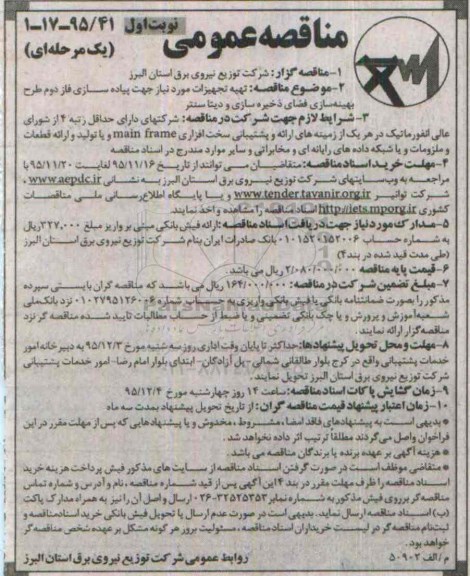 نوبت اول
۱-۱۷-۹۵/۴۱
(یک مرحله‌ای)
مناقصه عمومی
۱-مناقصه گزار: شرکت توزیع نیروی برق استان البرز
۲-موضوع مناقصه: تهیه تجهیزات مورد نیاز جهت پیاده سازی فاز دوم طرح
بهینه‌سازی فضای ذخیره سازی و دیتا سنتر
۳-شرایط لازم جهت شرکت در مناقصه: شرکتهای دارای حداقل رتبه ۴ از شورای
عالی انفورماتیک در هر یک از زمینه های ارائه و پشتیبانی سخت افزاری main frame و یا تولید و ارائه قطعات
و ملزومات و یا شبکه داده های رایانه ای و مخابراتی و سایر موارد مندرج در اسناد مناقصه
۴-مهلت خرید اسناد مناقصه: متقاضیان می توانند از تاریخ ۹۵/۱۱/۱۶ لغایت ۹۵/۱۱/۲۰ با
مراجعه به وب‌سایتهای شرکت توزیع نیروی برق استان البرز به نشانی www.aepdc.ir،
شرکت توانیر www.tender.tavanir.org.ir و یا پایگاه اطلاع‌رسانی ملی مناقصات
کشوری http://iets.mporg.ir اسناد مناقصه را مشاهده و اخذ نمایند.
۵-مدارک مورد نیاز جهت دریافت اسناد مناقصه: ارائه فیش بانکی مبنی بر واریز مبلغ ۳۲۷,۰۰۰ ریال
به شماره حساب ۰۱۰۱۵۲۰۱۵۲۰۰۶ بانک صادرات ایران بنام شرکت توزیع نیروی برق استان البرز
(طی مدت قید شده در بند۴)
۶-قیمت پایه مناقصه ۲/۰۸۰/۰۰۰/۰۰۰ ریال می باشد.
۷-مبلغ تضمین شرکت در مناقصه: ۱۶۴/۰۰۰/۰۰۰ ریال می باشد که مناقصه گران بایستی سپرده
مذکور را بصورت ضمانتنامه بانکی یا فیش بانکی واریزی به حساب شماره ۰۱۰۲۷۹۵۱۲۶۰۰۶ نزد بانک ملی
شعبه آموزش و پرورش و یا چک بانکی تضمینی و یا ضبط از حساب مطالبات تایید شده مناقصه گر نزد
مناقصه گزار ارائه نمایند.
۸-مهلت و محل تحویل پیشنهادها: حداکثر تا پایان وقت اداری روز سه شنبه مورخ ۹۵/۱۲/۳ به دبیرخانه امور
خدمات پشتیبانی واقع در کرج بلوار طالقانی شمالی-پل آزادگان-ابتدای بلوار امام رضا- امور خدمات پشتیبانی
شرکت توزیع نیروی برق استان البرز تحویل نمایند.
۹-زمان گشایش پاکات اسناد مناقصه: ساعت ۱۴ روز چهارشنبه مورخ ۹۵/۱۲/۴
۱۰-زمان اعتبار پیشنهاد قیمت مناقصه گران: از تاریخ تحویل پیشنهاد بمدت سه ماه
* بدیهی است به پیشنهادهای فاقد امضاء، مشروط، مخدوش و یا پیشنهادهایی که پس از مهلت مقرر در این
فراخوان واصل می‌گردند مطلقاً ترتیب اثر داده نخواهد شد.
* هزینه آگهی بر عهده برنده یا برندگان مناقصه می باشد.
* متقاضی موظف است در صورت گرفتن اسناد مناقصه از سایت های مذکور فیش پرداخت هزینه خرید
اسناد مناقصه را ظرف مهلت مقرر در بند ۴ این آگهی پس از قید شماره مناقصه، نام و آدرس و شماره تماس
مناقصه گر بر روی فیش مذکور به شماره نمابر ۳۲۵۲۵۲۵۳-۰۲۶ ارسال و اصل آن را نیز به همراه مدارک پاکت
(ب) اسناد مناقصه ارسال نماید. بدیهی است در صورت عدم ارسال یا تحویل فیش بانکی خرید اسناد مناقصه و
ثبت نام مناقصه گر در لیست خریداران اسناد مناقصه، مسئولیت بروز هر گونه مشکل بر عهده شخص مناقصه گر
خواهد بود.
م/الف ۵۰۹۰۲
روابط عمومی شرکت توزیع نیروی برق استان البرز